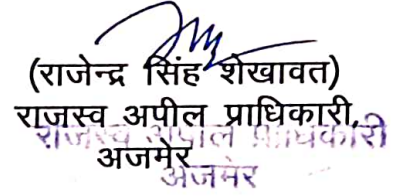 (राजेन्द्र सिंह शेखावत)
राजस्व अपील प्राधिकारी,
राजस्व अपील प्राधिकारी
अजमेर
अजमेर